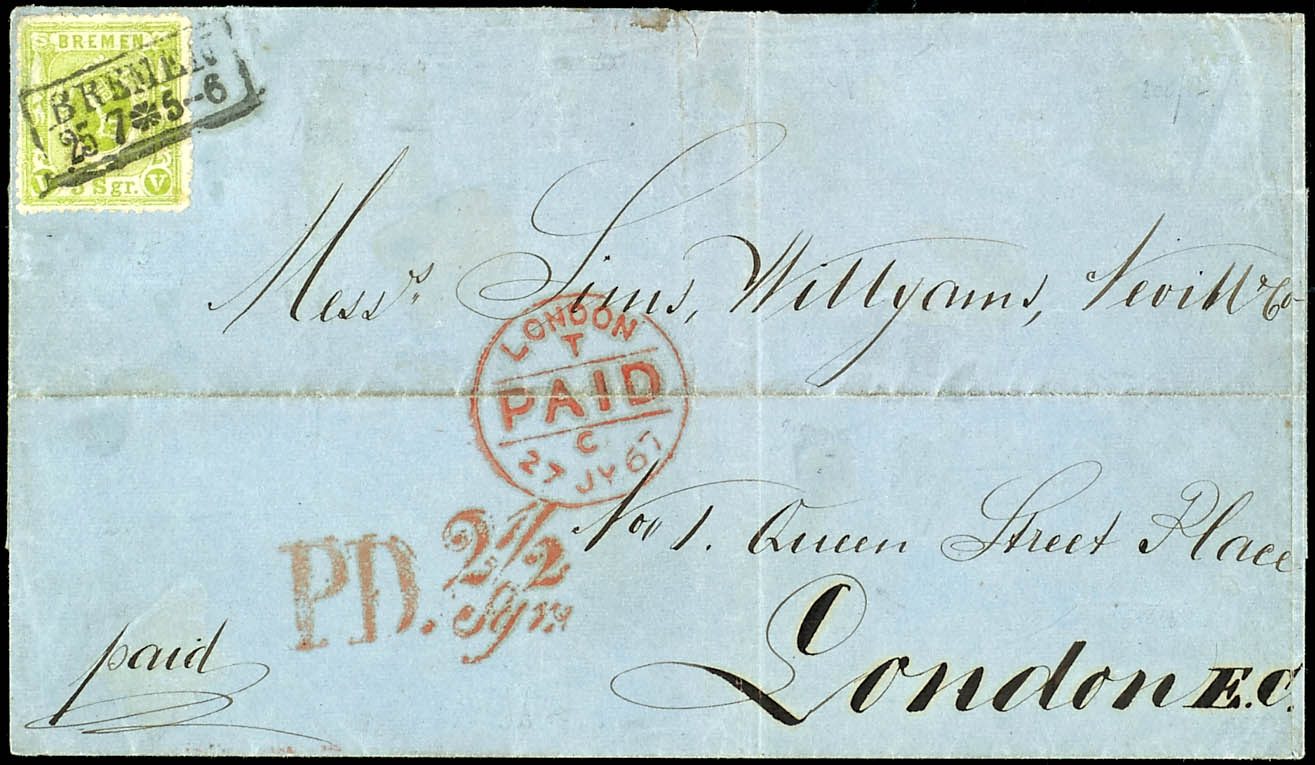 BREMEN
BREMEN
25 7 * 5-6
5 Sgr. V
Messrs. Sims, Willyams, Nevill & Co
LONDON
T
PAID
C
27 JY 67
No. 1. Queen Street Place
PD. 2 1/2
Sgr.
paid
London E.C.